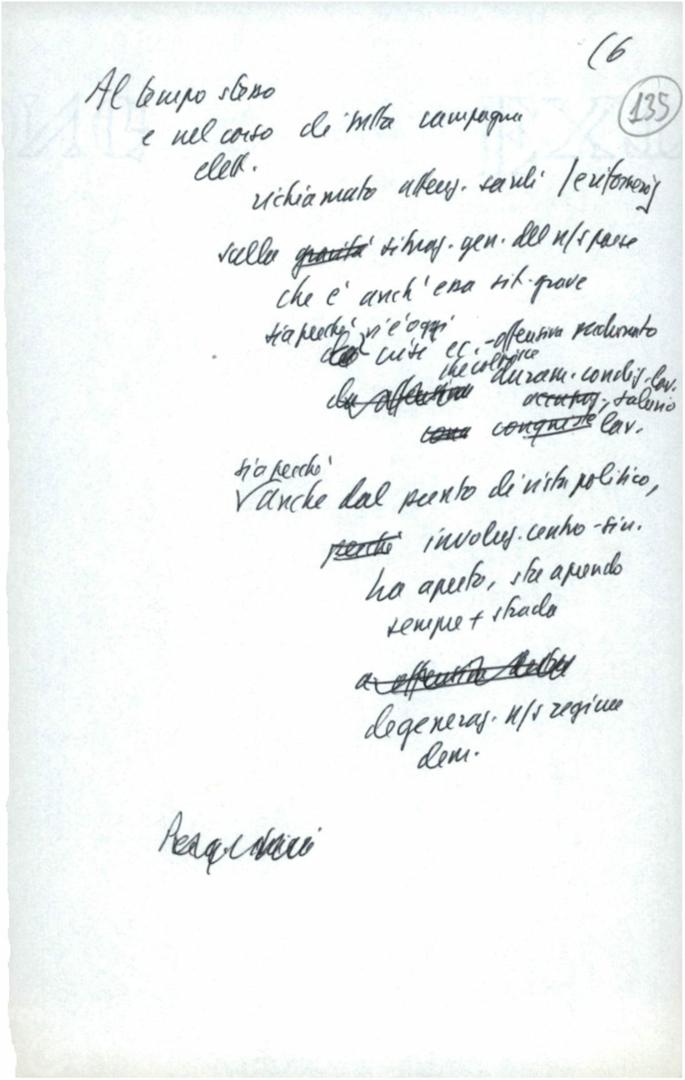 (6
135
Al tempo stesso
e nel corso di tutta campagna
elett.
richiamato attenz. sardi
sulla gravità situaz. gen. del n/s paese
che è anch'essa sit. grave
sia perché vi è oggi
crisi ec. - offensiva padronato
che colpisce
da offensiva duram. condiz. lav.
salario
conquiste lav.
sia perché
anche dal punto di vista politico,
perché involuz. centro-sin.
ha aperto, sta aprendo
sempre + strada
a offensiva
degeneraz. n/s regime
dem.